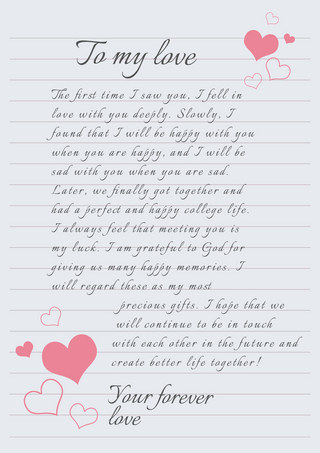 To my love
The first time I saw you, I fell in
love with you deeply. Slowly, I
found that I will be happy with you
when you are happy, and I will be
sad with you when you are sad.
Later, we finally got together and
had a perfect and happy college life.
I always feel that meeting you is
my luck. I am grateful to God for
giving us many happy memories. I
will regard these as my most
precious gifts. I hope that we
will continue to be in touch
with each other in the future and
create better life together!
Your forever
love